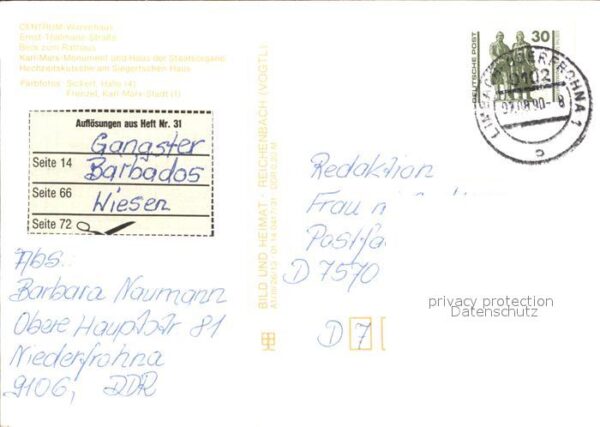 CENTRUM-Warenhaus
Ernst-Thälmann-Straße
Blick zum Rathaus
Karl-Marx-Monument und Haus der Staatsorgane
Hochzeitskutsche am Siegertschen Haus
Farbfotos: Sickert, Halle (4)
Frenzel, Karl-Marx-Stadt (1)
Auflösungen aus Heft Nr. 31
Gangster
Seite 14
Barbados
Seite 66
Wiesen
Seite 72
Abs.:
Barbara Naumann
Obere Hauptstr 81
Niederfrohna
9106, DDR
BILD UND HEIMAT · REICHENBACH (VOGTL)
DDR 0,20 M
DEUTSCHE POST
30
LIMBACH-OBERFROHNA 1
9102
07.08.90-8
c
Redaktion
Frau
Postfa
D 7570
D 7
privacy protection
Datenschutz